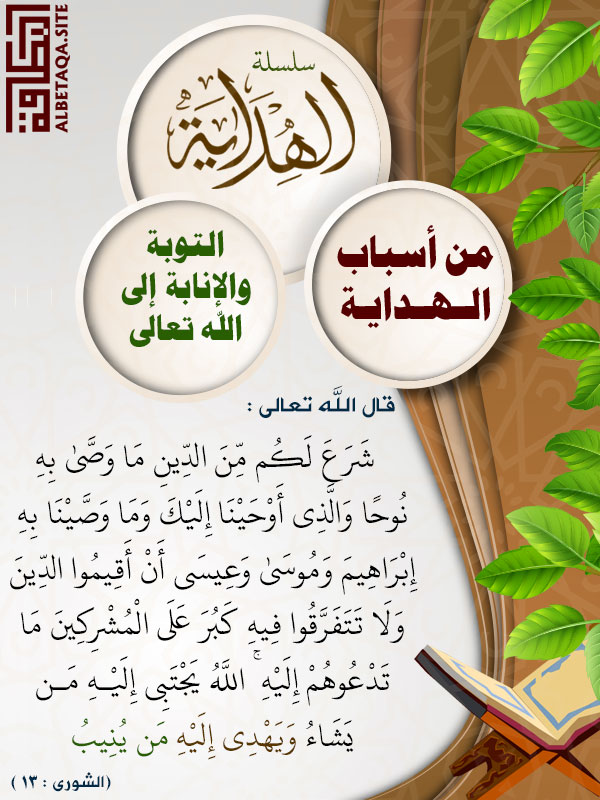 البطاقة
ALBETAQA.SITE
سلسلة
الهِدَايَة
من أسباب
الـهـدايـة
التوبة
والإنابة إلى
الله تعالى
قال اللَّه تعالى :
شَرَعَ لَكُم مِّنَ الدِّينِ مَا وَصَّىٰ بِهِ
نُوحًا وَالَّذِى أَوْحَيْنَا إِلَيْكَ وَمَا وَصَّيْنَا بِهِ
إِبْرَاهِيمَ وَمُوسَىٰ وَعِيسَى أَنْ أَقِيمُوا الدِّينَ
وَلَا تَتَفَرَّقُوا فِيهِ كَبُرَ عَلَى الْمُشْرِكِينَ مَا
تَدْعُوهُمْ إِلَيْهِ ۚ اللَّهُ يَجْتَبِى إِلَيْـهِ مَـن
يَشَاءُ وَيَهْدِى إِلَيْهِ مَن يُنِيبُ
(الشورى : ١٣ )